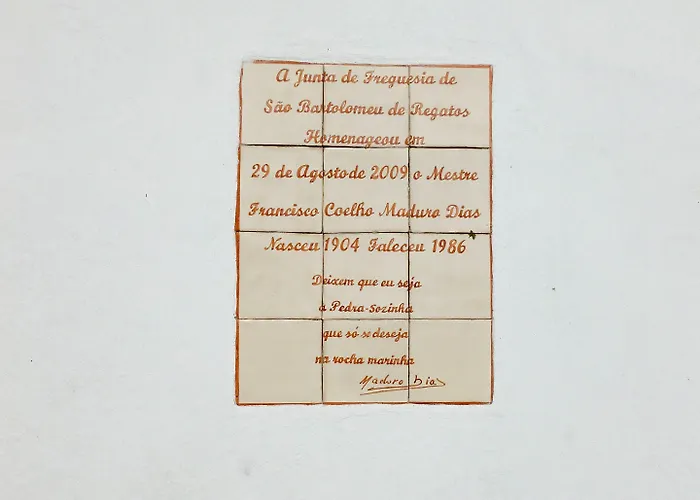 A Junta de Freguesia de
São Bartolomeu de Regatos
Homenageou em
29 de Agosto de 2009 o Mestre
Francisco Coelho Maduro Dias
Nasceu 1904 Faleceu 1986
Deixem que eu seja
a Pedra-Sozinha
que só se deseja
na rocha marinha
Maduro Dias